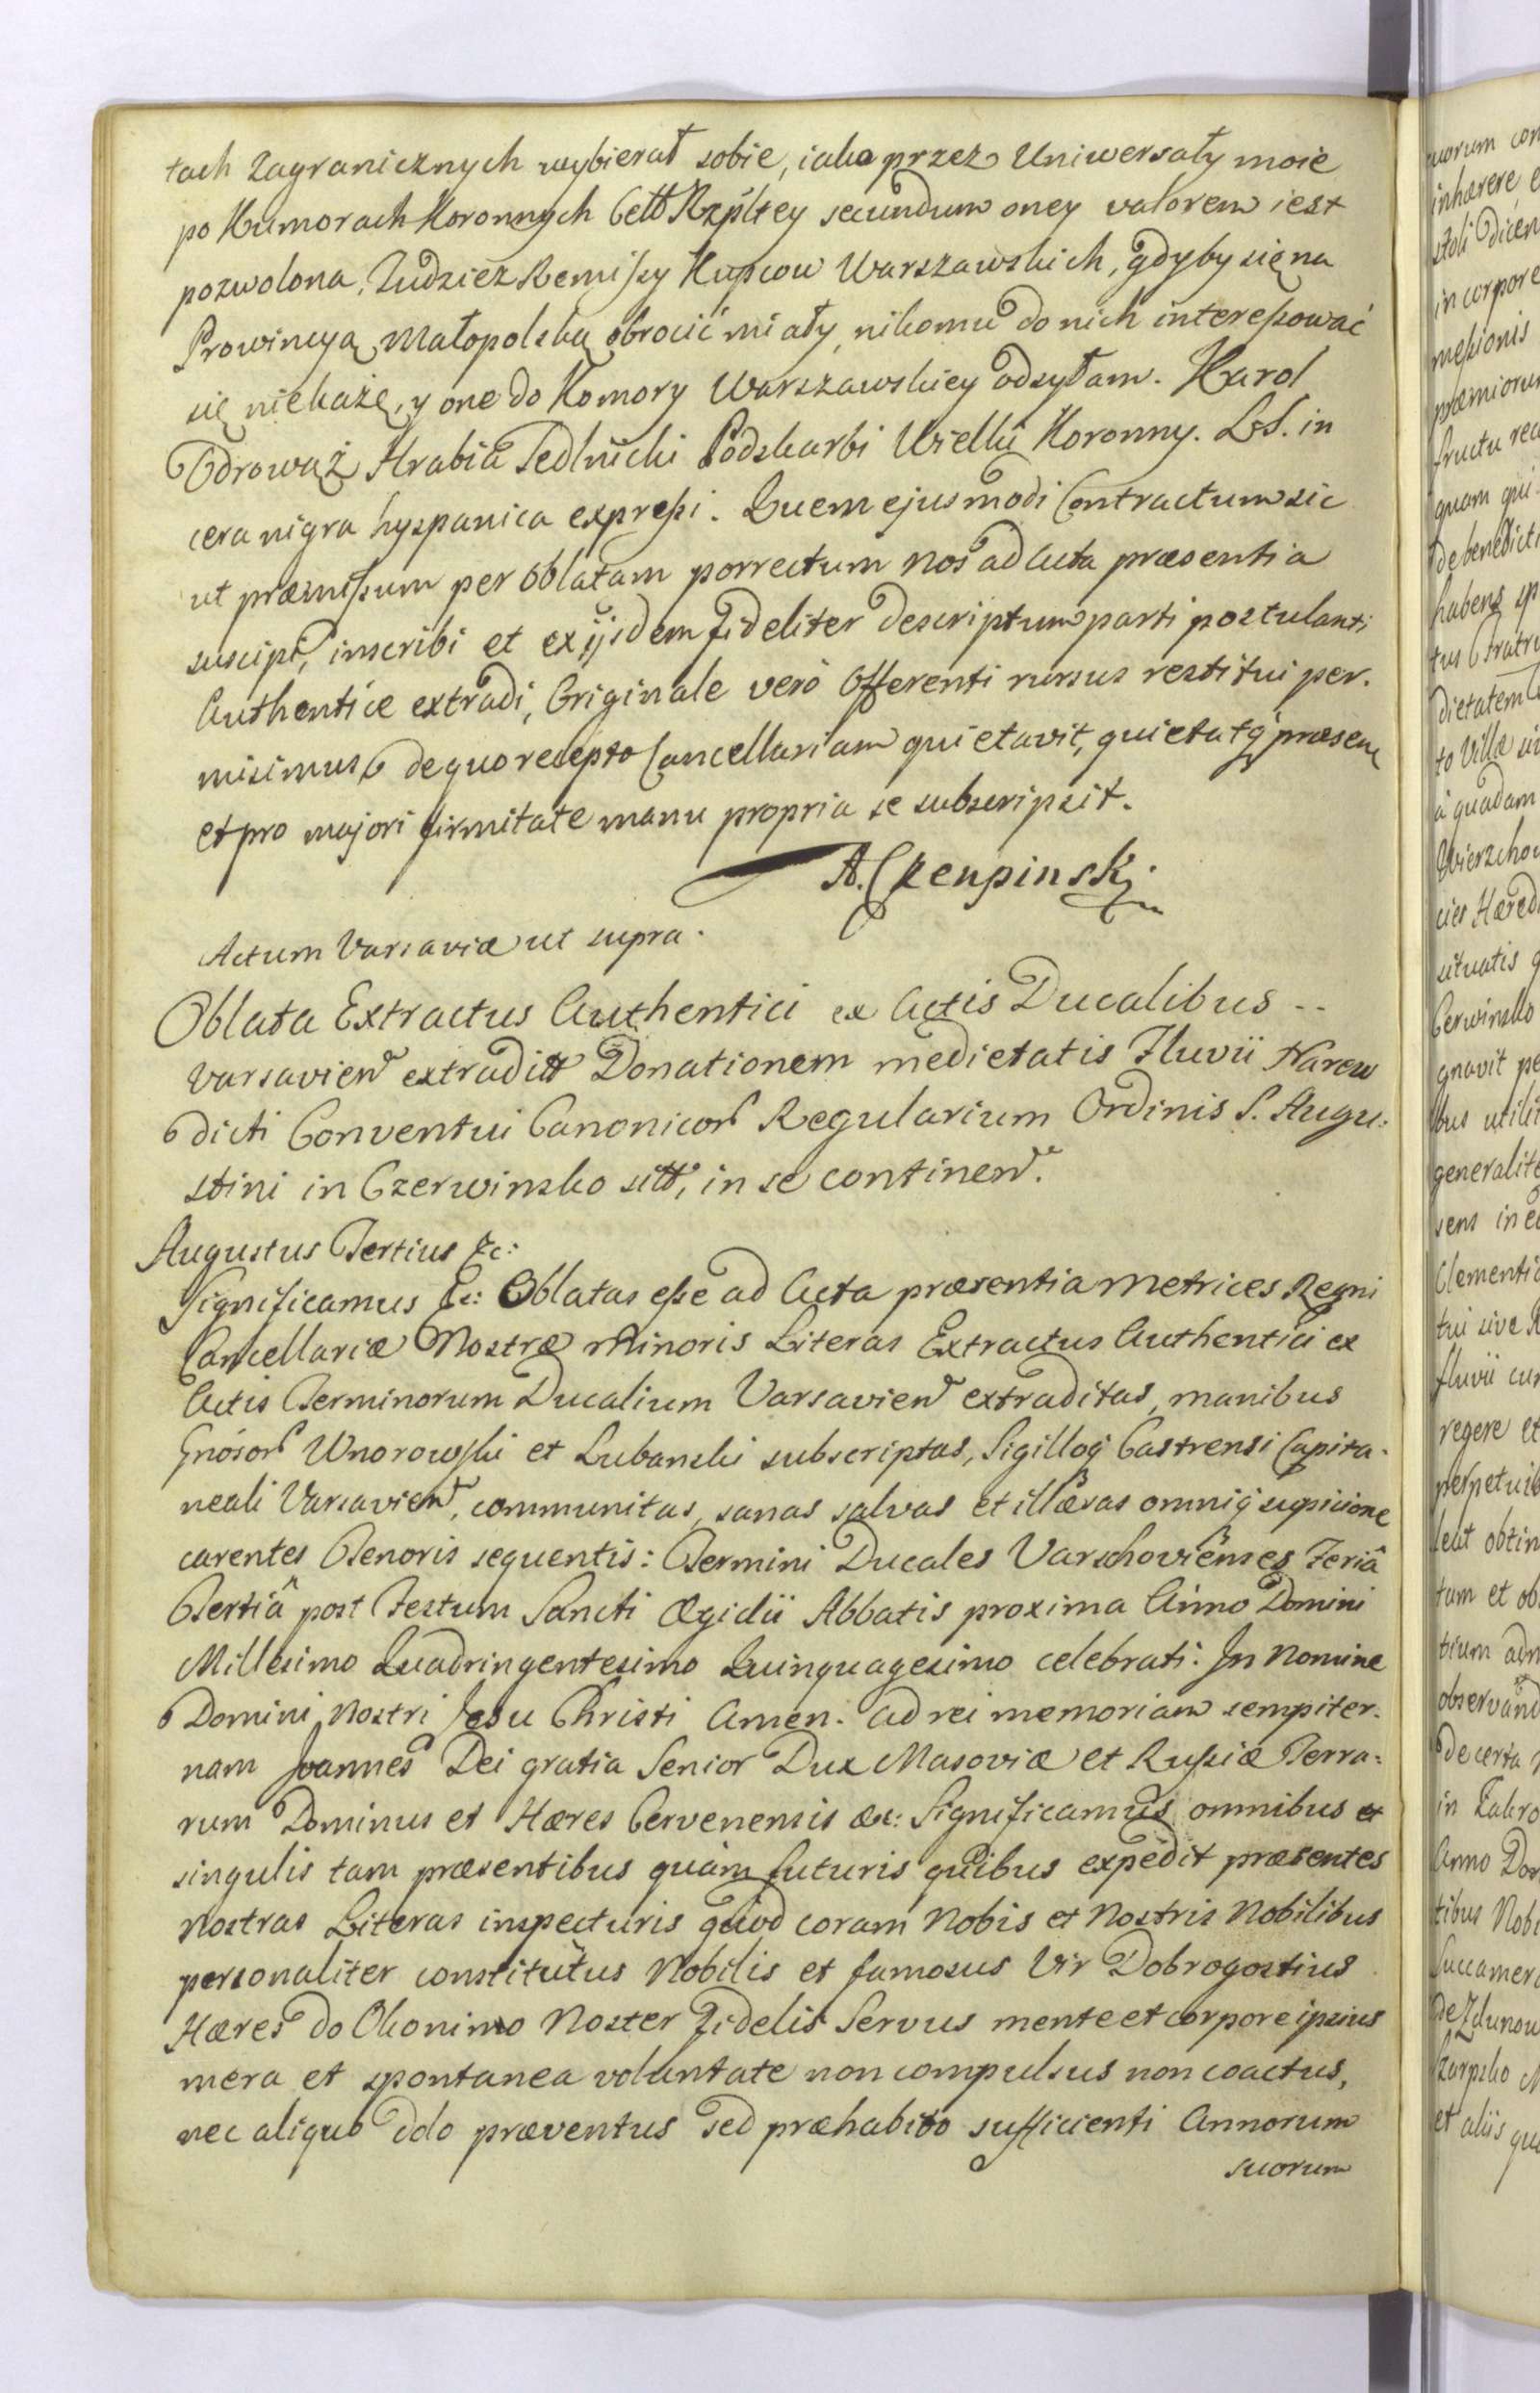 tach Zagranicznych wybierał sobie, iako przez Uniwersały moie
po Kumorach Koronnych Cełł Rzpltey secundum oney valorem iest
pozwolona, Tudziez Remissy Kupcow Warszawskich, gdyby się na
Prowincyą Małopolską obrocić miały, nikomu do nich interessować
się niekażę, y one do Komory Warszawskiey odsyłam. Karol
Odrowąż Hrabia Sedlnicki Podskarbi Wielki Koronny. L.S. in
cera nigra hyspanica expressi. Quem ejusmodi Contractum sic
ut præmissum per Oblatam porrectum Nos ad Acta præsentia
suscipi, inscribi et ex ijsdem fideliter descriptum parti postulanti
Authentice extradi, Originale verò Offerenti rursus restitui per-
misimus de quo recepto Cancellariam quietavit, quietatq præsen
et pro majori firmitate manu propria se subscripsit.
A. Czenpinski
Actum Varsaviæ ut supra.
Oblata Extractus Authentici ex Actis Ducalibus --
Varsavien extraditt Donationem medietatis Fluvii Narew
dicti Conventui Canonicor Regularium Ordinis S. Augu-
stini in Czerwinsko sitt, in se continen.
Augustus Tertius &c:
Significamus &c: Oblatas esse ad Acta præsentia Metrices Regni
Cancellariæ Nostræ Minoris Literas Extractus Authentici ex
Actis Terminorum Ducalium Varsavien extraditas, manibus
Gnósor Wnorowski et Lubanski subscriptas, Sigilloq Castrensi Capita-
neali Varsavien, communitas, sanas salvas et illæsas omniq supicione
carentes Tenoris sequentis: Termini Ducales Varschovienses Feriâ
Tertiâ post Festum Sancti Ægidii Abbatis proxima Anno Domini
Millesimo Quadringentesimo Quinquagesimo celebrati. In Nomine
Domini Nostri Jesu Christi Amen. Ad rei memoriam sempiter-
nam Joannes Dei gratia Senior Dux Masoviæ et Russiæ Terra-
rum Dominus et Hæres Cervenensis &c: Significamus omnibus et
singulis tam præsentibus quàm futuris quibus expedit præsentes
Nostras Literas inspecturis quod coram Nobis et Nostris Nobilibus
personaliter constitutus Nobilis et famosus Vir Dobrogostius
Hæres do Okonimo Noster Fidelis Servus mente et corpore ipsius
mera et spontanea voluntate non compulsus non coactus,
nec aliquo dolo præventus sed præhabito sufficienti Annorum
suorum